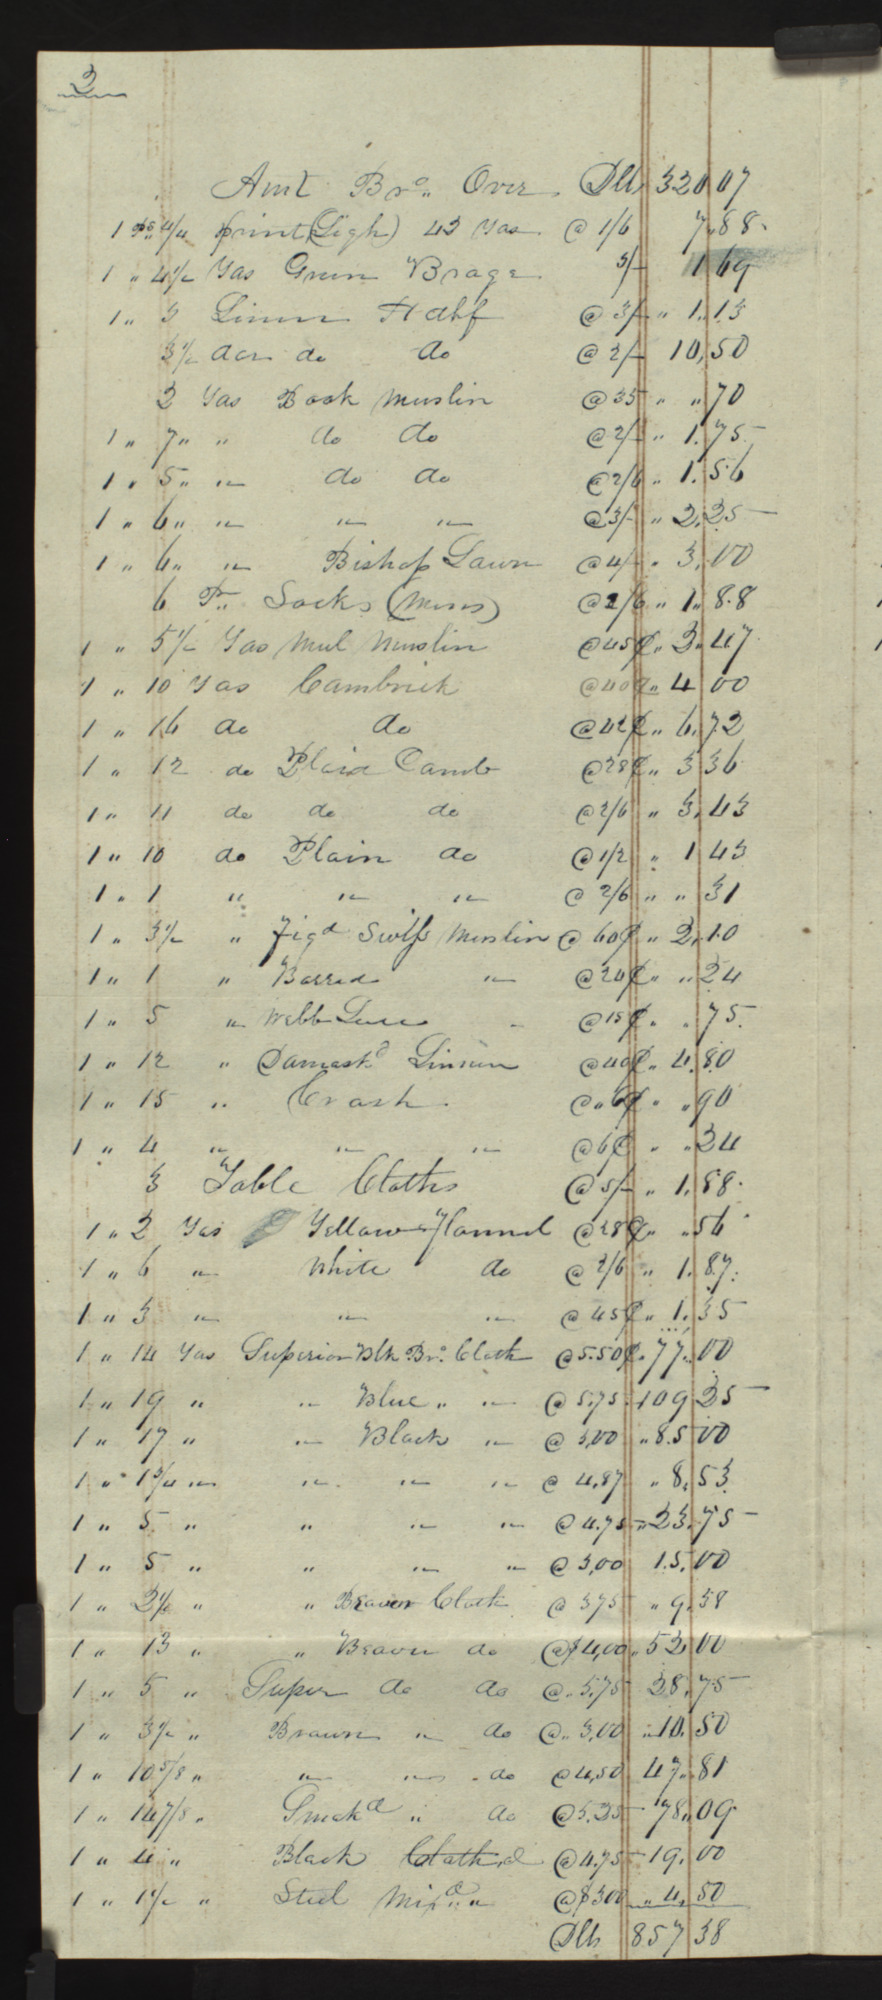 2
Amt Bro. Over Dlls 320 07
1 Ps 4/4 print (Ligh) 42 Yds @ 1/6 7.88
1 " 4 1/2 Yds Green Brage 3/- 1 69
1 " 3 Linen Half @ 3/- " 1.13
3 1/2 doz do do @ 2/- 10,50
2 Yds Book Muslin @ 35 " " 70
1 " 7 " " do do @ 2/- " 1.75
1 " 5 " " do do @ 2/6 " 1.56
1 " 6 " " " " @ 3/- " 2.25
1 " 6 " " Bishop Lawn @ 4/- " 3.00
6 Pr. Socks (Mens) @ 2/6 " 1.88
1 " 5 1/2 Yds Mul Muslin @ 45¢ " 2.47
1 " 10 Yds Cambrick @ 40¢ " 4 00
1 " 16 do do @ 42¢ " 6.72
1 " 12 do Plaid Camb @ 28¢ " 3 36
1 " 11 do do do @ 2/6 " 3.43
1 " 10 do Plain do @ 1/2 " 1 43
1 " 1 " " " @ 2/6 " " 31
1 " 3 1/2 " Figd Swiss Muslin @ 60¢ " 2.10
1 " 1 " Barred " @ 24¢ " " 24
1 " 5 " Webb Lace @ 15¢ " " 75
1 " 12 " Damaskd Linnen @ 40¢ " 4.80
1 " 15 " Crash @ " 6¢ " " 90
1 " 4 " " " @ 6¢ " " 24
3 Table Cloths @ 5/- " 1.88
1 " 2 Yds Yellow Flannel @ 28¢ " " 56
1 " 6 " White do @ 2/6 " 1.87
1 " 3 " " " @ 45¢ " 1.35
1 " 14 Yds Superior Blk Br. Cloth @ 5.50¢ " 77.00
1 " 19 " " Blue " " @ 5.75 109 25
1 " 17 " " Black " @ 5,00 " 85 00
1 " 1 3/4 " " " " @ 4,87 " 8.53
1 " 5 " " " " @ 4.75 " 23.75
1 " 5 " " " " @ 3,00 15.00
1 " 2 1/2 " " Beaver Cloth @ 3 75 " 9.38
1 " 13 " " Beaver do @ $4,00 " 52 00
1 " 5 " Super do do @ " 5,75 28.75
1 " 3 1/2 " Brown " do @ " 3,00 " 10.50
1 " 10 5/8 " " " do @ 4,50 47.81
1 " 14 7/8 " Smokd " do @ 5.25 78.09
1 " 4 " Black Cloth d @ 4.75 19.00
1 " 1 1/2 " Steel Mixd " " @ $3 00 " 4.50
Dlls 857 38